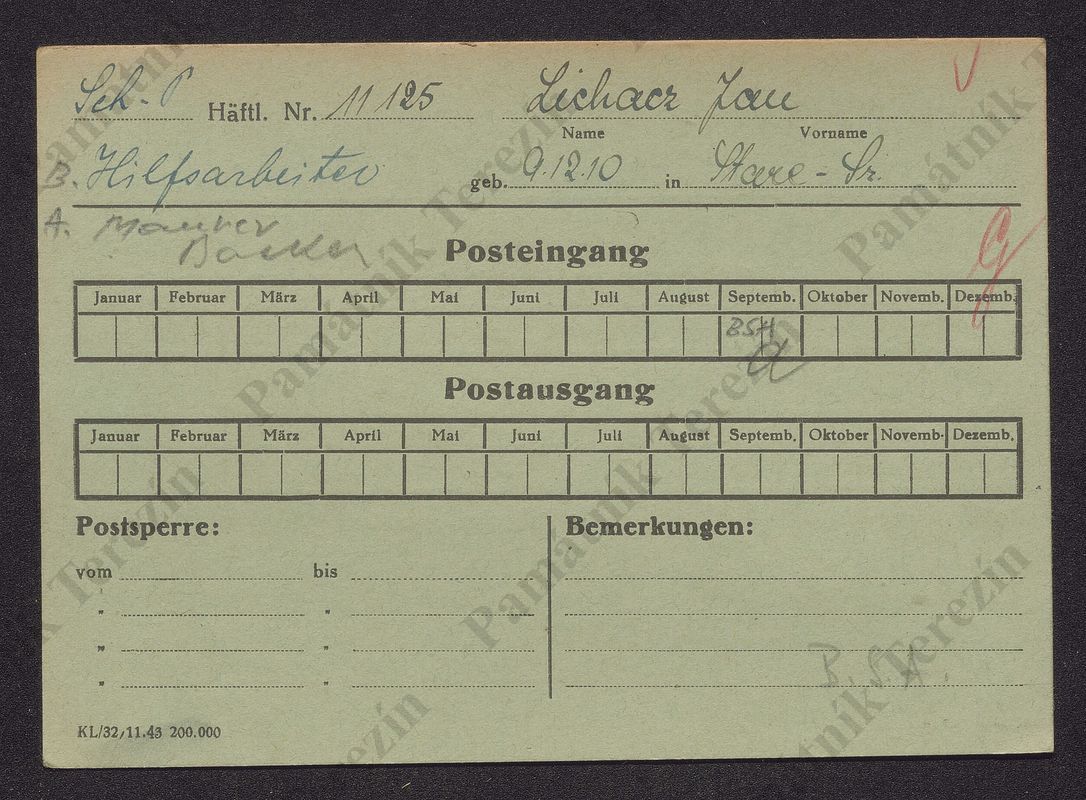 Sch.-P Häftl. Nr. 11125 Lichacz Jan
Name Vorname
B. Hilfsarbeiter geb. 9.12.10 in Stare-Sr.
A. Maurer
Posteingang
Januar Februar März April Mai Juni Juli August Septemb. Oktober Novemb. Dezemb.
BSH
Postausgang
Januar Februar März April Mai Juni Juli August Septemb. Oktober Novemb. Dezemb.
Postsperre: Bemerkungen:
vom bis
" "
" "
" "
B.S.H.
KL/32/11.43 200.000
Památník Terezín